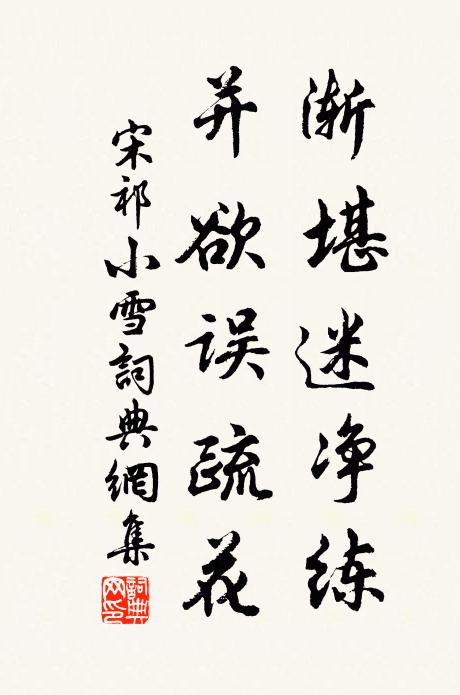 渐堪迷净练
并欲误疏花
宋祁小雪詞典網集
詞典网印